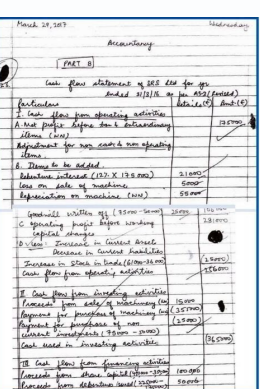 March 29, 2017 Wednesday
Accountancy
PART B
23.
Cash flow statement of SRS Ltd for yr
ended 31/3/16 as per AS-3 (Revised)
Particulars details (₹) Amt. (₹)
I. Cash flow from operating activities
A. Net profit before tax & extraordinary
items (WN)
Adjustment for non cash & non operating
items.
B. Items to be added.
Debenture interest (12% X 175000) 21000
Loss on sale of machine 5000
Depreciation on machine (WN) 55000
Goodwill written off (75000-50000) 25000
C operating profit before working
capital changes
D. Less: Increase in Current Asset
Decrease in Current liabilities
Increase in Stock in trade (61000-36000) (25000)
Cash flow from operating activities
II Cash flow from investing activities
Proceeds from sale of machinery 15000
Payment for purchase of machinery
Payment for purchase of non
current investments (75000 - 50000) (25000)
Cash used in investing activities (365000)
III Cash flow from financing activities
Proceeds from share capital 100000
Proceeds from debentures issued 50000